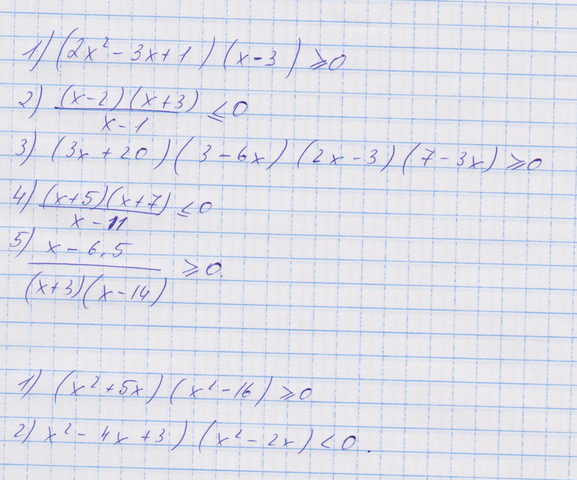 1) (2x² - 3x + 1) (x - 3) ≥ 0
2) (x-2)(x+3) / x - 1 ≤ 0
3) (3x + 20) (3 - 6x) (2x - 3) (7 - 3x) ≥ 0
4) (x+5)(x+7) / x - 11 ≤ 0
5) x - 6,5 / (x+3)(x-14) ≥ 0.
1) (x² + 5x) (x² - 16) ≥ 0
2) x² - 4x + 3) (x² - 2x) < 0.